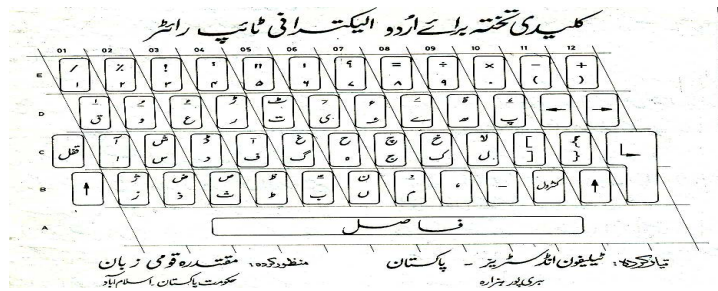 کلیدی تختہ برائے اُردو الیکٹرانی ٹائپ رائٹر
01 02 03 04 05 06 07 08 09 10 11 12
E / ٪ ! : " ' ؟ = ÷ × − +
۱ ۲ ۳ ۴ ۵ ۶ ۷ ۸ ۹ ۰ ( )
D ڑ ٹ ۓ ھ
ق و ع ر ت ی ء ے ہ پ ← →
C قفل آ ش ڈ غ ح چ خ لا [ {
ا س د ف گ ہ ج ک ل ] }
B ↑ ژ ض ص ن ↑
ز ذ ث ط ب ں م ، - کنٹرول
A فاصل
تیارکردہ: ٹیلیفون انڈسٹریز - پاکستان
ہری پور ہزارہ
منظورکردہ: مقتدرہ قومی زبان
حکومت پاکستان، اسلام آباد